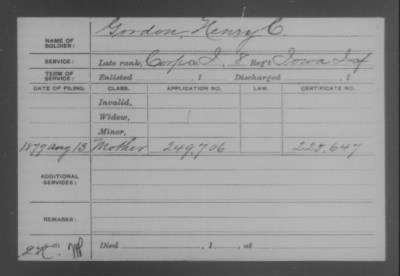 Gordon Henry C.
NAME OF SOLDIER:
SERVICE: Late rank, Corp. Co. I, 8 Reg't Iowa Inf
TERM OF SERVICE: Enlisted , 1 Discharged , 1
DATE OF FILING. CLASS. APPLICATION NO. LAW. CERTIFICATE NO.
Invalid,
Widow,
Minor,
1879 Aug 13 Mother 249,706 225,647
ADDITIONAL SERVICES:
REMARKS:
Died , 1 , at